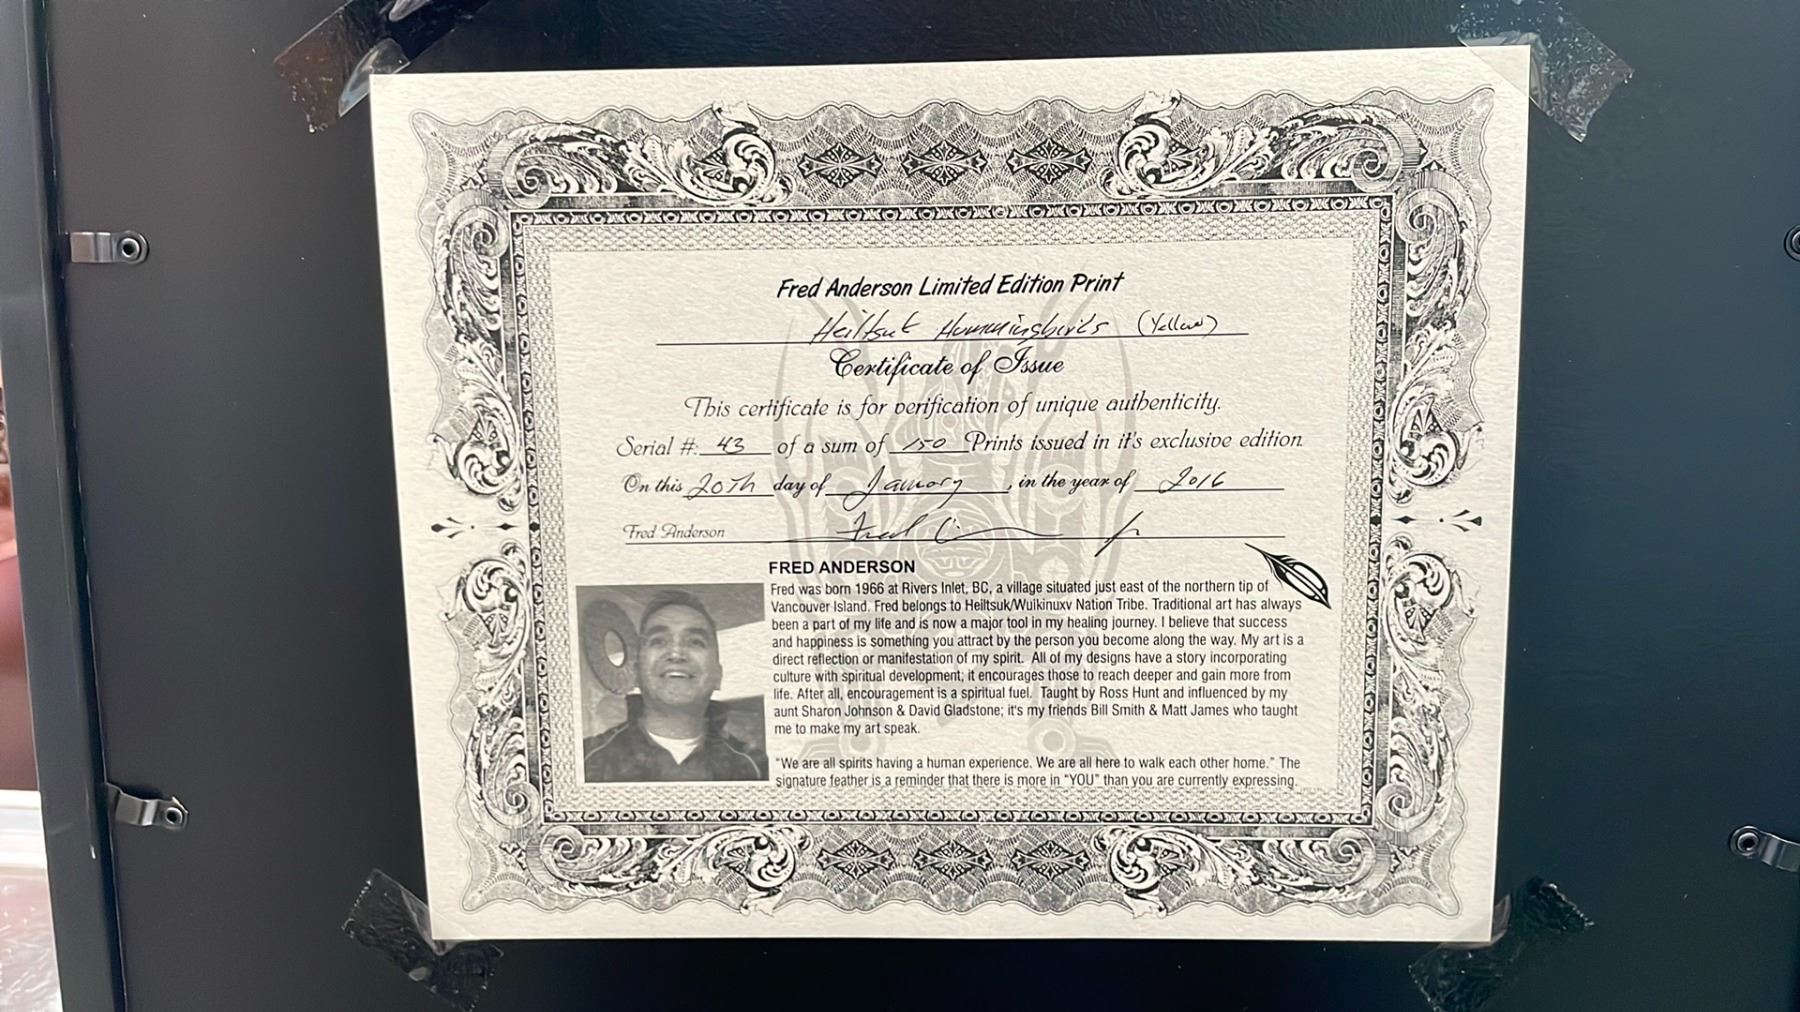 Fred Anderson Limited Edition Print
Heiltsuk Hummingbirds (Yellow)
Certificate of Issue
This certificate is for verification of unique authenticity.
Serial #: 43 of a sum of 150 Prints issued in it's exclusive edition
On this 20th day of January, in the year of 2016
Fred Anderson Fred
FRED ANDERSON
Fred was born 1966 at Rivers Inlet, BC, a village situated just east of the northern tip of
Vancouver Island. Fred belongs to Heiltsuk/Wuikinuxv Nation Tribe. Traditional art has always
been a part of my life and is now a major tool in my healing journey. I believe that success
and happiness is something you attract by the person you become along the way. My art is a
direct reflection or manifestation of my spirit. All of my designs have a story incorporating
culture with spiritual development; it encourages those to reach deeper and gain more from
life. After all, encouragement is a spiritual fuel. Taught by Ross Hunt and influenced by my
aunt Sharon Johnson & David Gladstone; it's my friends Bill Smith & Matt James who taught
me to make my art speak.
"We are all spirits having a human experience. We are all here to walk each other home." The
signature feather is a reminder that there is more in "YOU" than you are currently expressing.